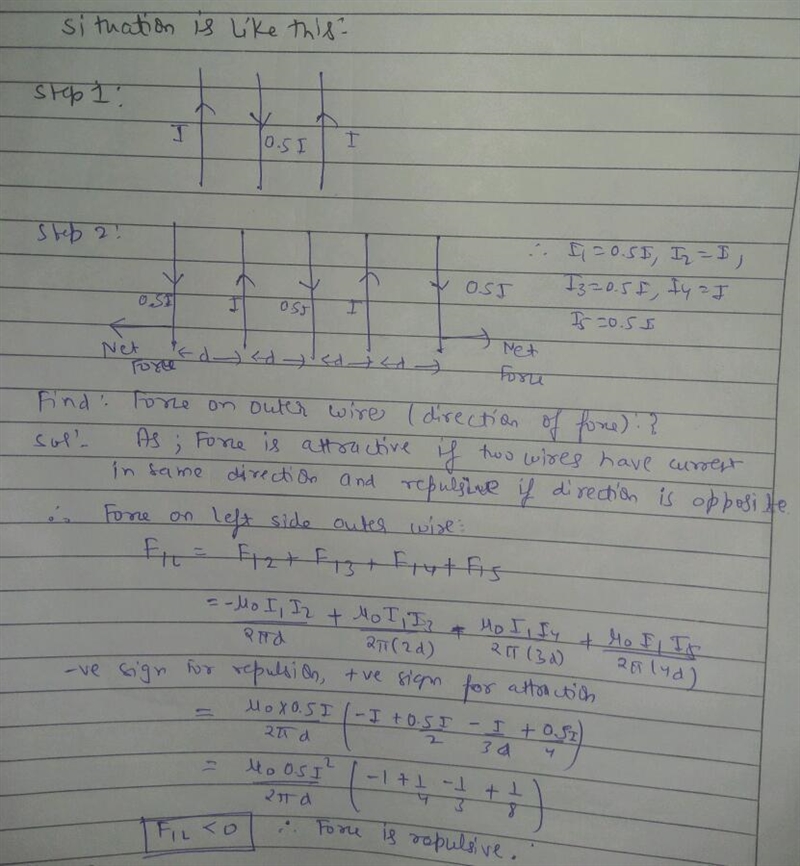 Situation is Like this:-
Step 1:
I 0.5I I
Step 2:
∴ I₁ = 0.5I, I₂ = I,
0.5I I 0.5I I 0.5I I₃ = 0.5I, I₄ = I
I₅ = 0.5I
Net Force ←d→ ←d→ ←d→ ←d→ Net Force
Find: Force on outer wires (direction of force):?
Sol:- As; Force is attractive if two wires have current
in same direction and repulsive if direction is opposite
∴ Force on left side outer wire:
F₁L = F₁₂ + F₁₃ + F₁₄ + F₁₅
= -μ₀I₁I₂/2πd + μ₀I₁I₃/2π(2d) - μ₀I₁I₄/2π(3d) + μ₀I₁I₅/2π(4d)
-ve sign for repulsion, +ve sign for attraction
= μ₀×0.5I/2πd (-I + 0.5I/2 - I/3d + 0.5I/4)
= μ₀0.5I²/2πd (-1 + 1/4 - 1/3 + 1/8)
F₁L < 0 ∴ Force is repulsive.